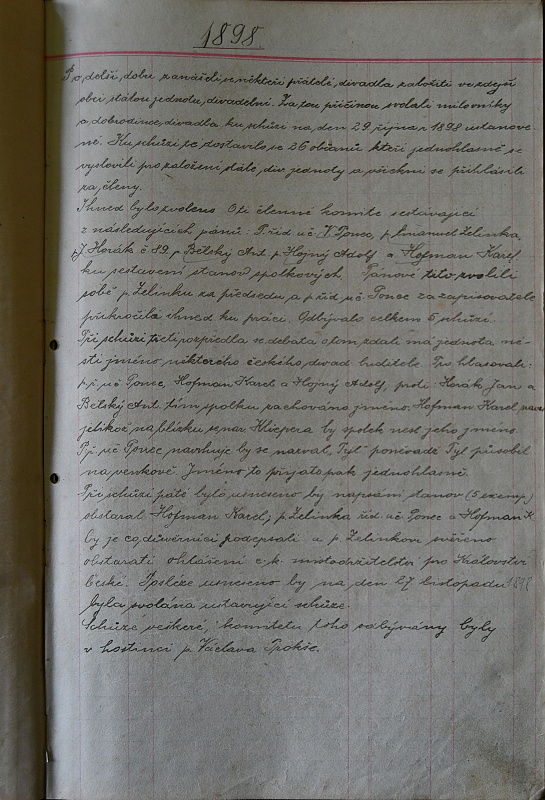 1898.
Po delší dobu zanášeli se někteří přátelé divadla založiti ve zdejší
obci stálou jednotu divadelní. Za tou příčinou svolali milovníky
a dobrodince divadla ku schůzi na den 29 října r. 1898 ustanove-
né. Ku schůzi té dostavilo se 26 občanů kteří jednohlasně se
vyslovili pro založení stálé div. jednoty a všichni se přihlásili
za členy.
Ihned bylo zvoleno 6ti členné komité sestávající
z následujících pánů: Př. říd. uč. V. Ponec, p. Emanuel Zelinka,
p. J. Horák č 89, p. Bělský Ant. p. Hojný Adolf a Hofman Karel
ku sestavení stanov spolkových. Pánové tito zvolili
sobě p. Zelinku za předsedu a p. říd. uč. Ponce za zapisovatele
přikročila ihned ku práci. Odbývalo celkem 5 schůzí.
Při schůzi třetí rozpředla se debata o tom, zdali má jednota né-
sti jméno některého českého divad. buditele. Pro hlasovali:
p. ř. uč. Ponec, Hofman Karel a Hojný Adolf, proti: Horák Jan a
Bělský Ant. tím spolku zachováno jméno. Hofman Karel
jelikož na blízku je nar. Klicpera by spolek nesl jeho jméno.
P. ř. uč Ponec navrhuje by se nazval "Tyl" poněvadž Tyl působil
na venkově. Jméno to přijato pak jednohlasně.
Při schůzi páté bylo usneseno by napsání stanov (5 exemp.)
obstaral Hofman Karel, p. Zelinka říd. uč. Ponec a Hofman K.
by je co důvěrníci podepsali a p. Zelinkovi svěřeno
obstarati ohlášení c. k. místodržitelství pro Království
české. Posléze usneseno by na den 27 listopadu 1898
byla svolána ustavující schůze.
Schůze veškeré, komitétu toho odbývány byly
v hostinci p. Václava Prokše.